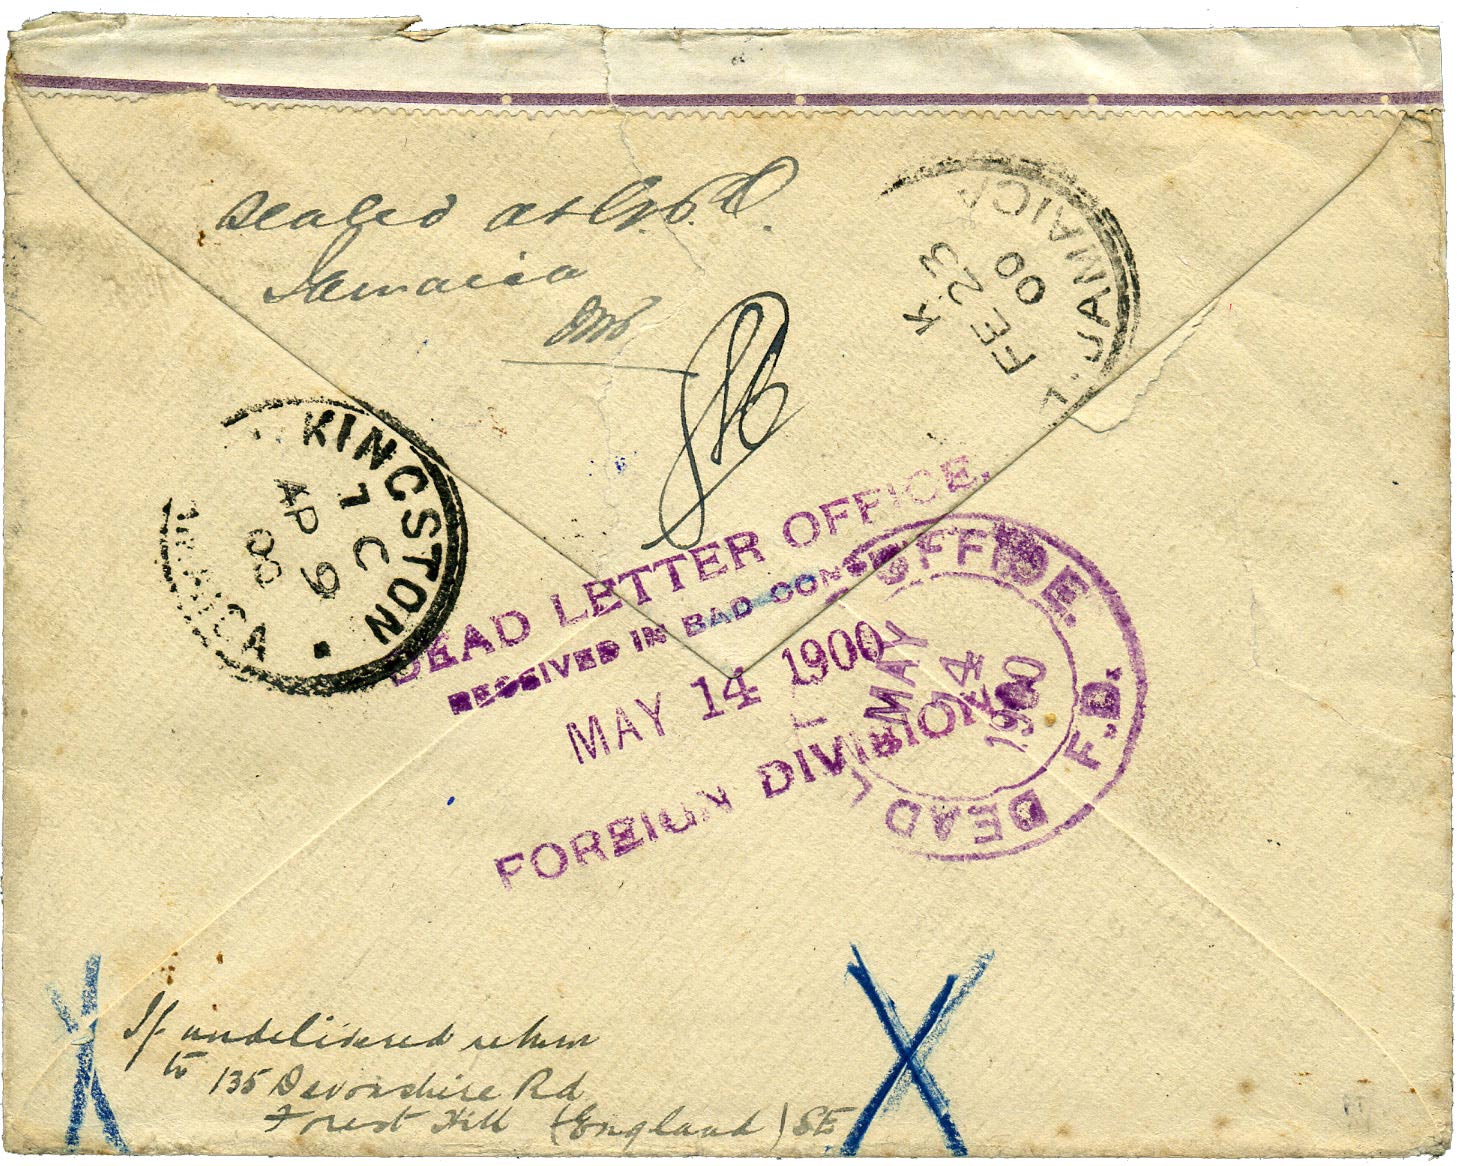 Sealed at G.P.O.
Jamaica
JAMAICA
K
FE 23
00
KINGSTON
C
AP 9
00
JAMAICA
DEAD LETTER OFFICE.
RECEIVED IN BAD CONDI
MAY 14 1900
FOREIGN DIVISION
DEAD L OFFICE. F.D.
MAY
14
1900
X
X
If undelivered return
to 135 Devonshire Rd
Forest Hill (England) SE